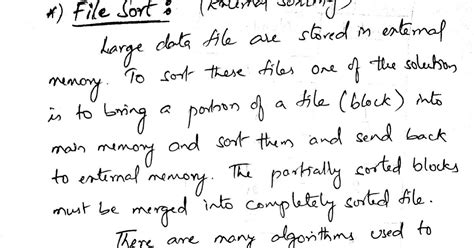 *) File Sort : (External Sorting)
Large data file are stored in external
memory. To sort these files one of the solution
is to bring a portion of a file (block) into
main memory and sort them and send back
to external memory. The partially sorted blocks
must be merged into completely sorted file.
There are many algorithms used to